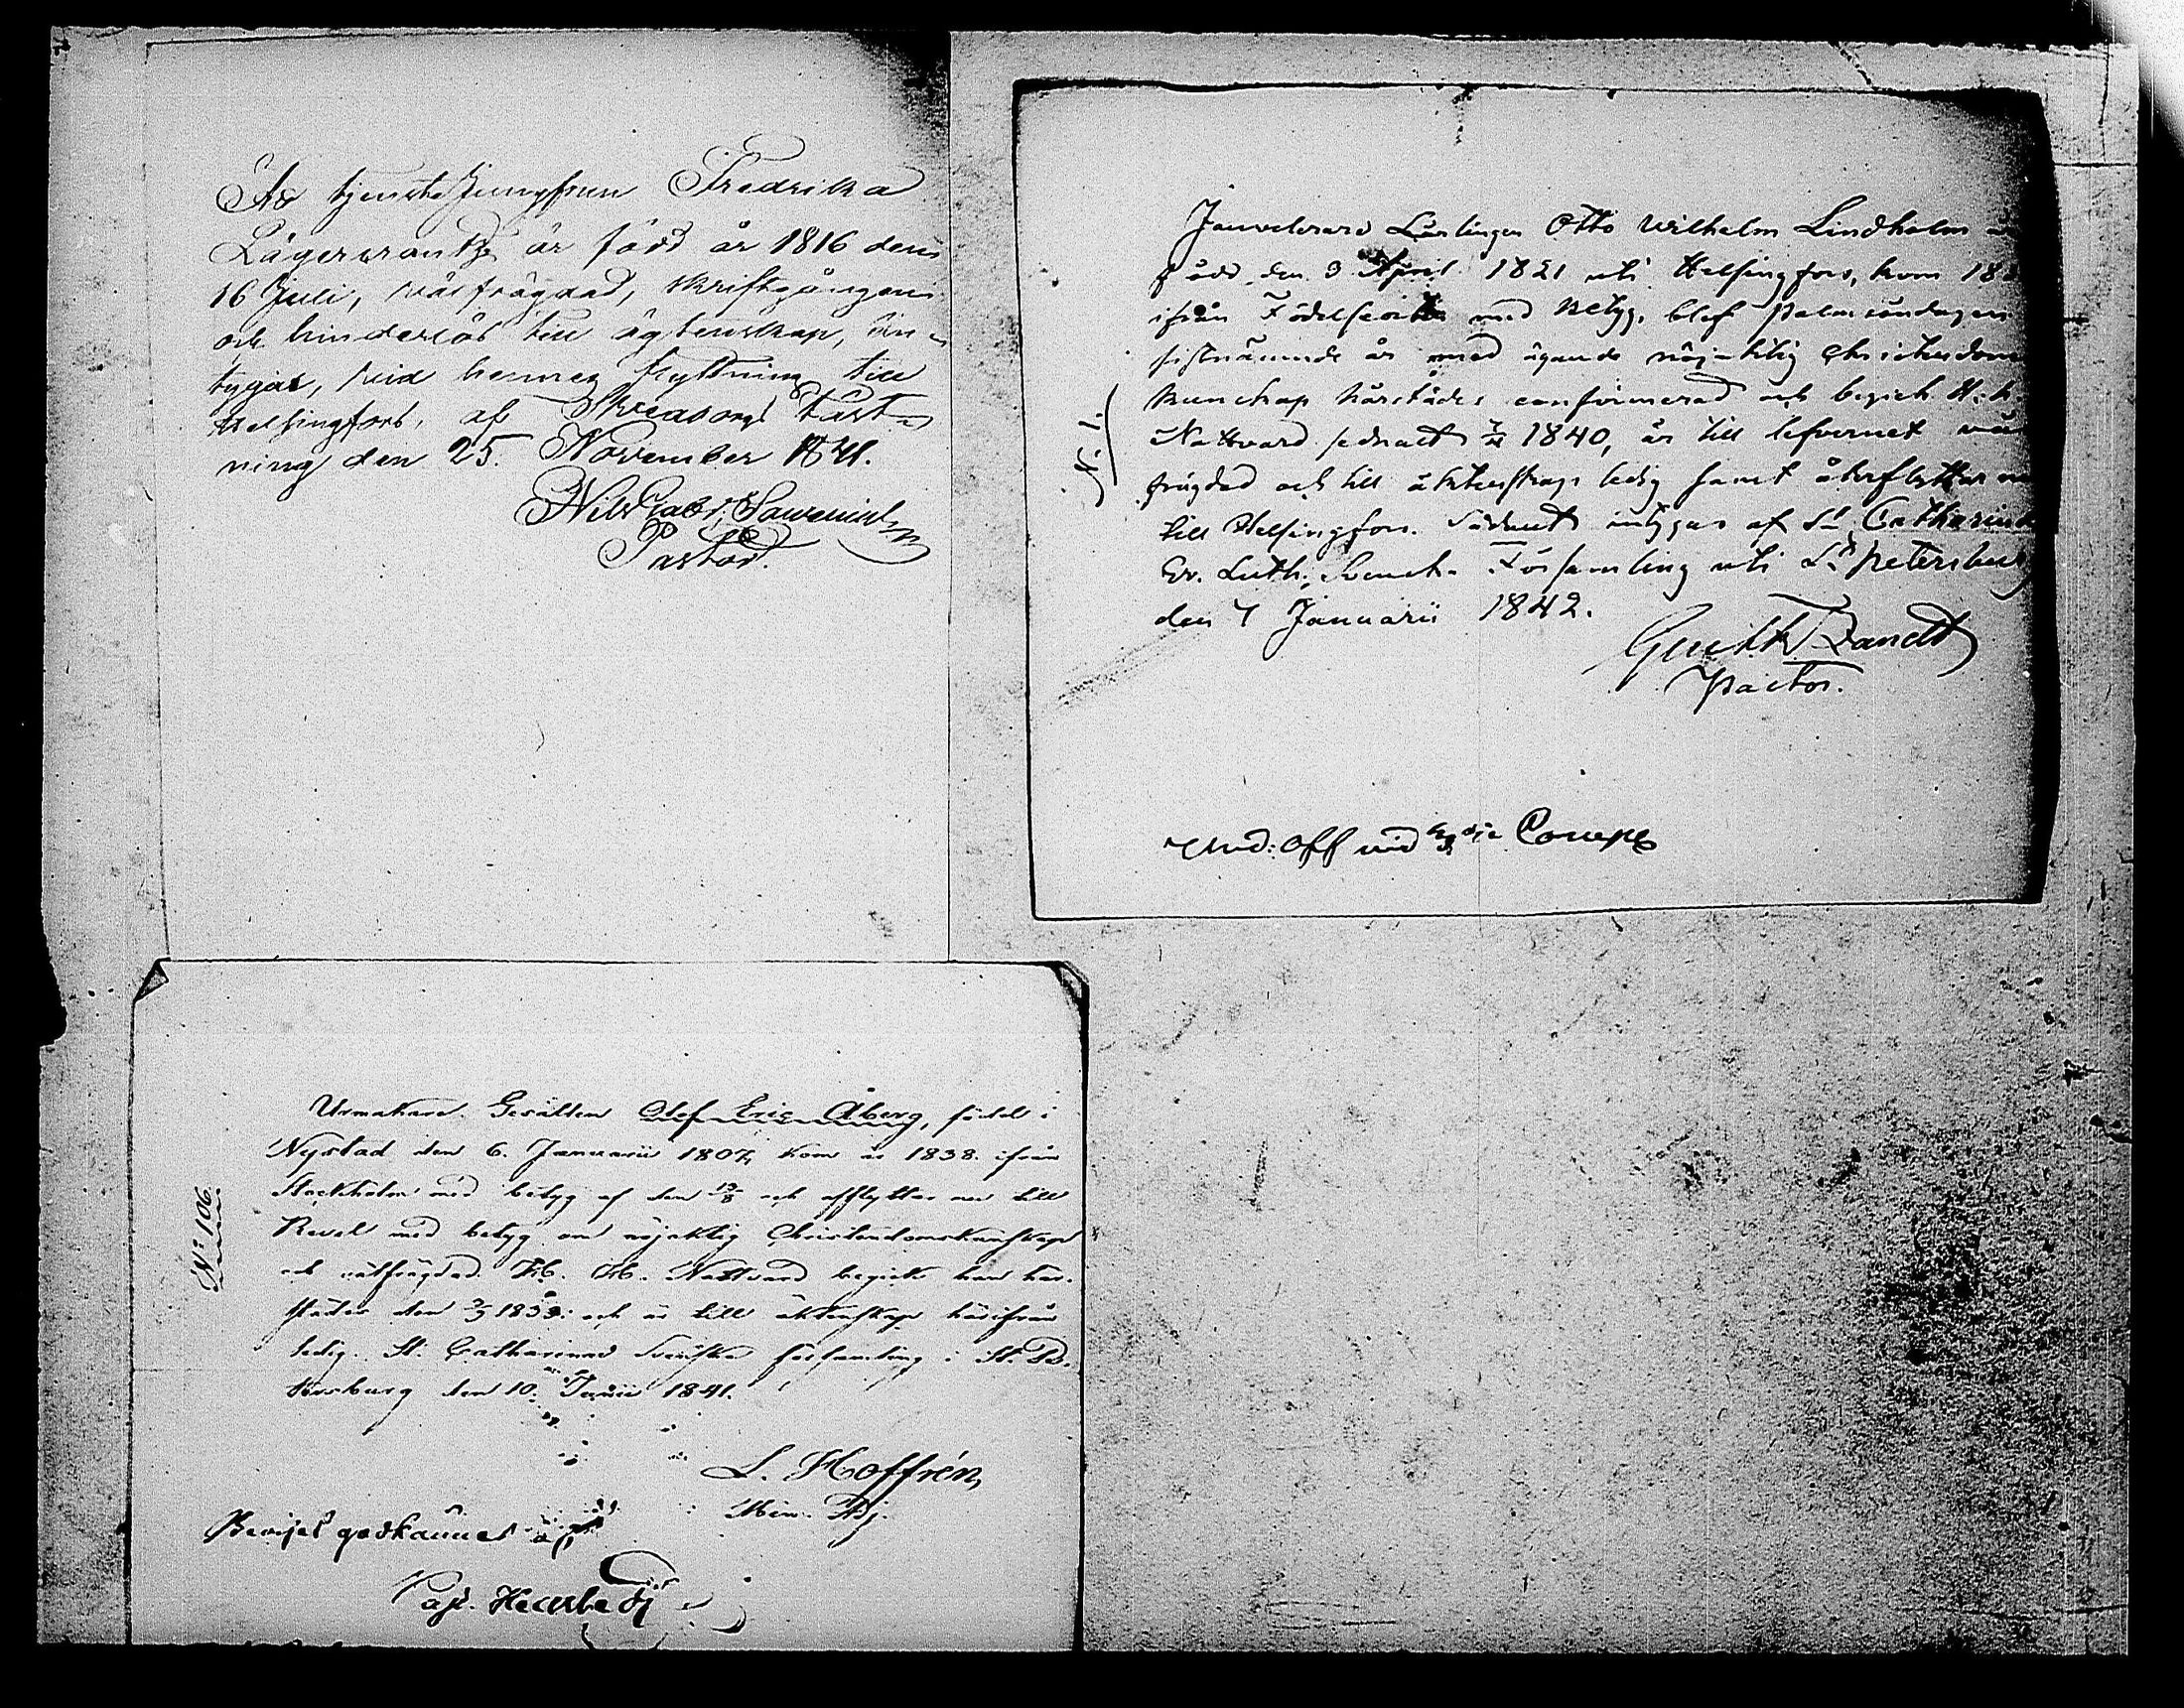 At tjenste Jungfrun Fredrika
Lägercrantz är född år 1816 den
16 Juli, välfrägdad, skriftgången
och hinderlös till ägtenskap, in-
tygas, vid hennes flyttning till
Helsingfors, af Sveaborgs fäst-
ning den 25. November 1841.
Nils Gabr.
Pastor.
N. 1.
Jouvelerare Lärlingen Otto Wilhelm Lindholm
född den 3 April 1821 uti Helsingfors, kom 18
ifrån Födelseorten med Betyg, blef Palmsöndagen
sistnämnde år med ägande nöjaktig Christendoms
kunskap härstädes confirmerad och begick H. h.
Nattvard sednast 1840, är till lefvernet väl
frägdad och till äktenskap ledig samt återflyttar nu
till Helsingfors. Sådant intygas af St Catharina
Ev. Luth. Svensk. Församling uti St Petersburg
den 7 Januarii 1842.
Pastor.
Und: Off vid Comp
No 106.
Urmakare Gesällen Olof Eric Åberg, född i
Nystad den 6. Januarii 1807, kom år 1838. ifrån
Stockholm med betyg af den 13/8 och afflyttar nu till
Revel med betyg om nöjaktig Christendomskunskap
och välfrägdad. H. H. Nattvard begick han här-
städes den 1839. och är till äktenskap härifrån
ledig. St. Catharinae Svenska församling i St. Pe-
tersburg den 10. Junii 1841.
L. Hoffrén,
Min. Adj.
Beviset godkännes
Past.